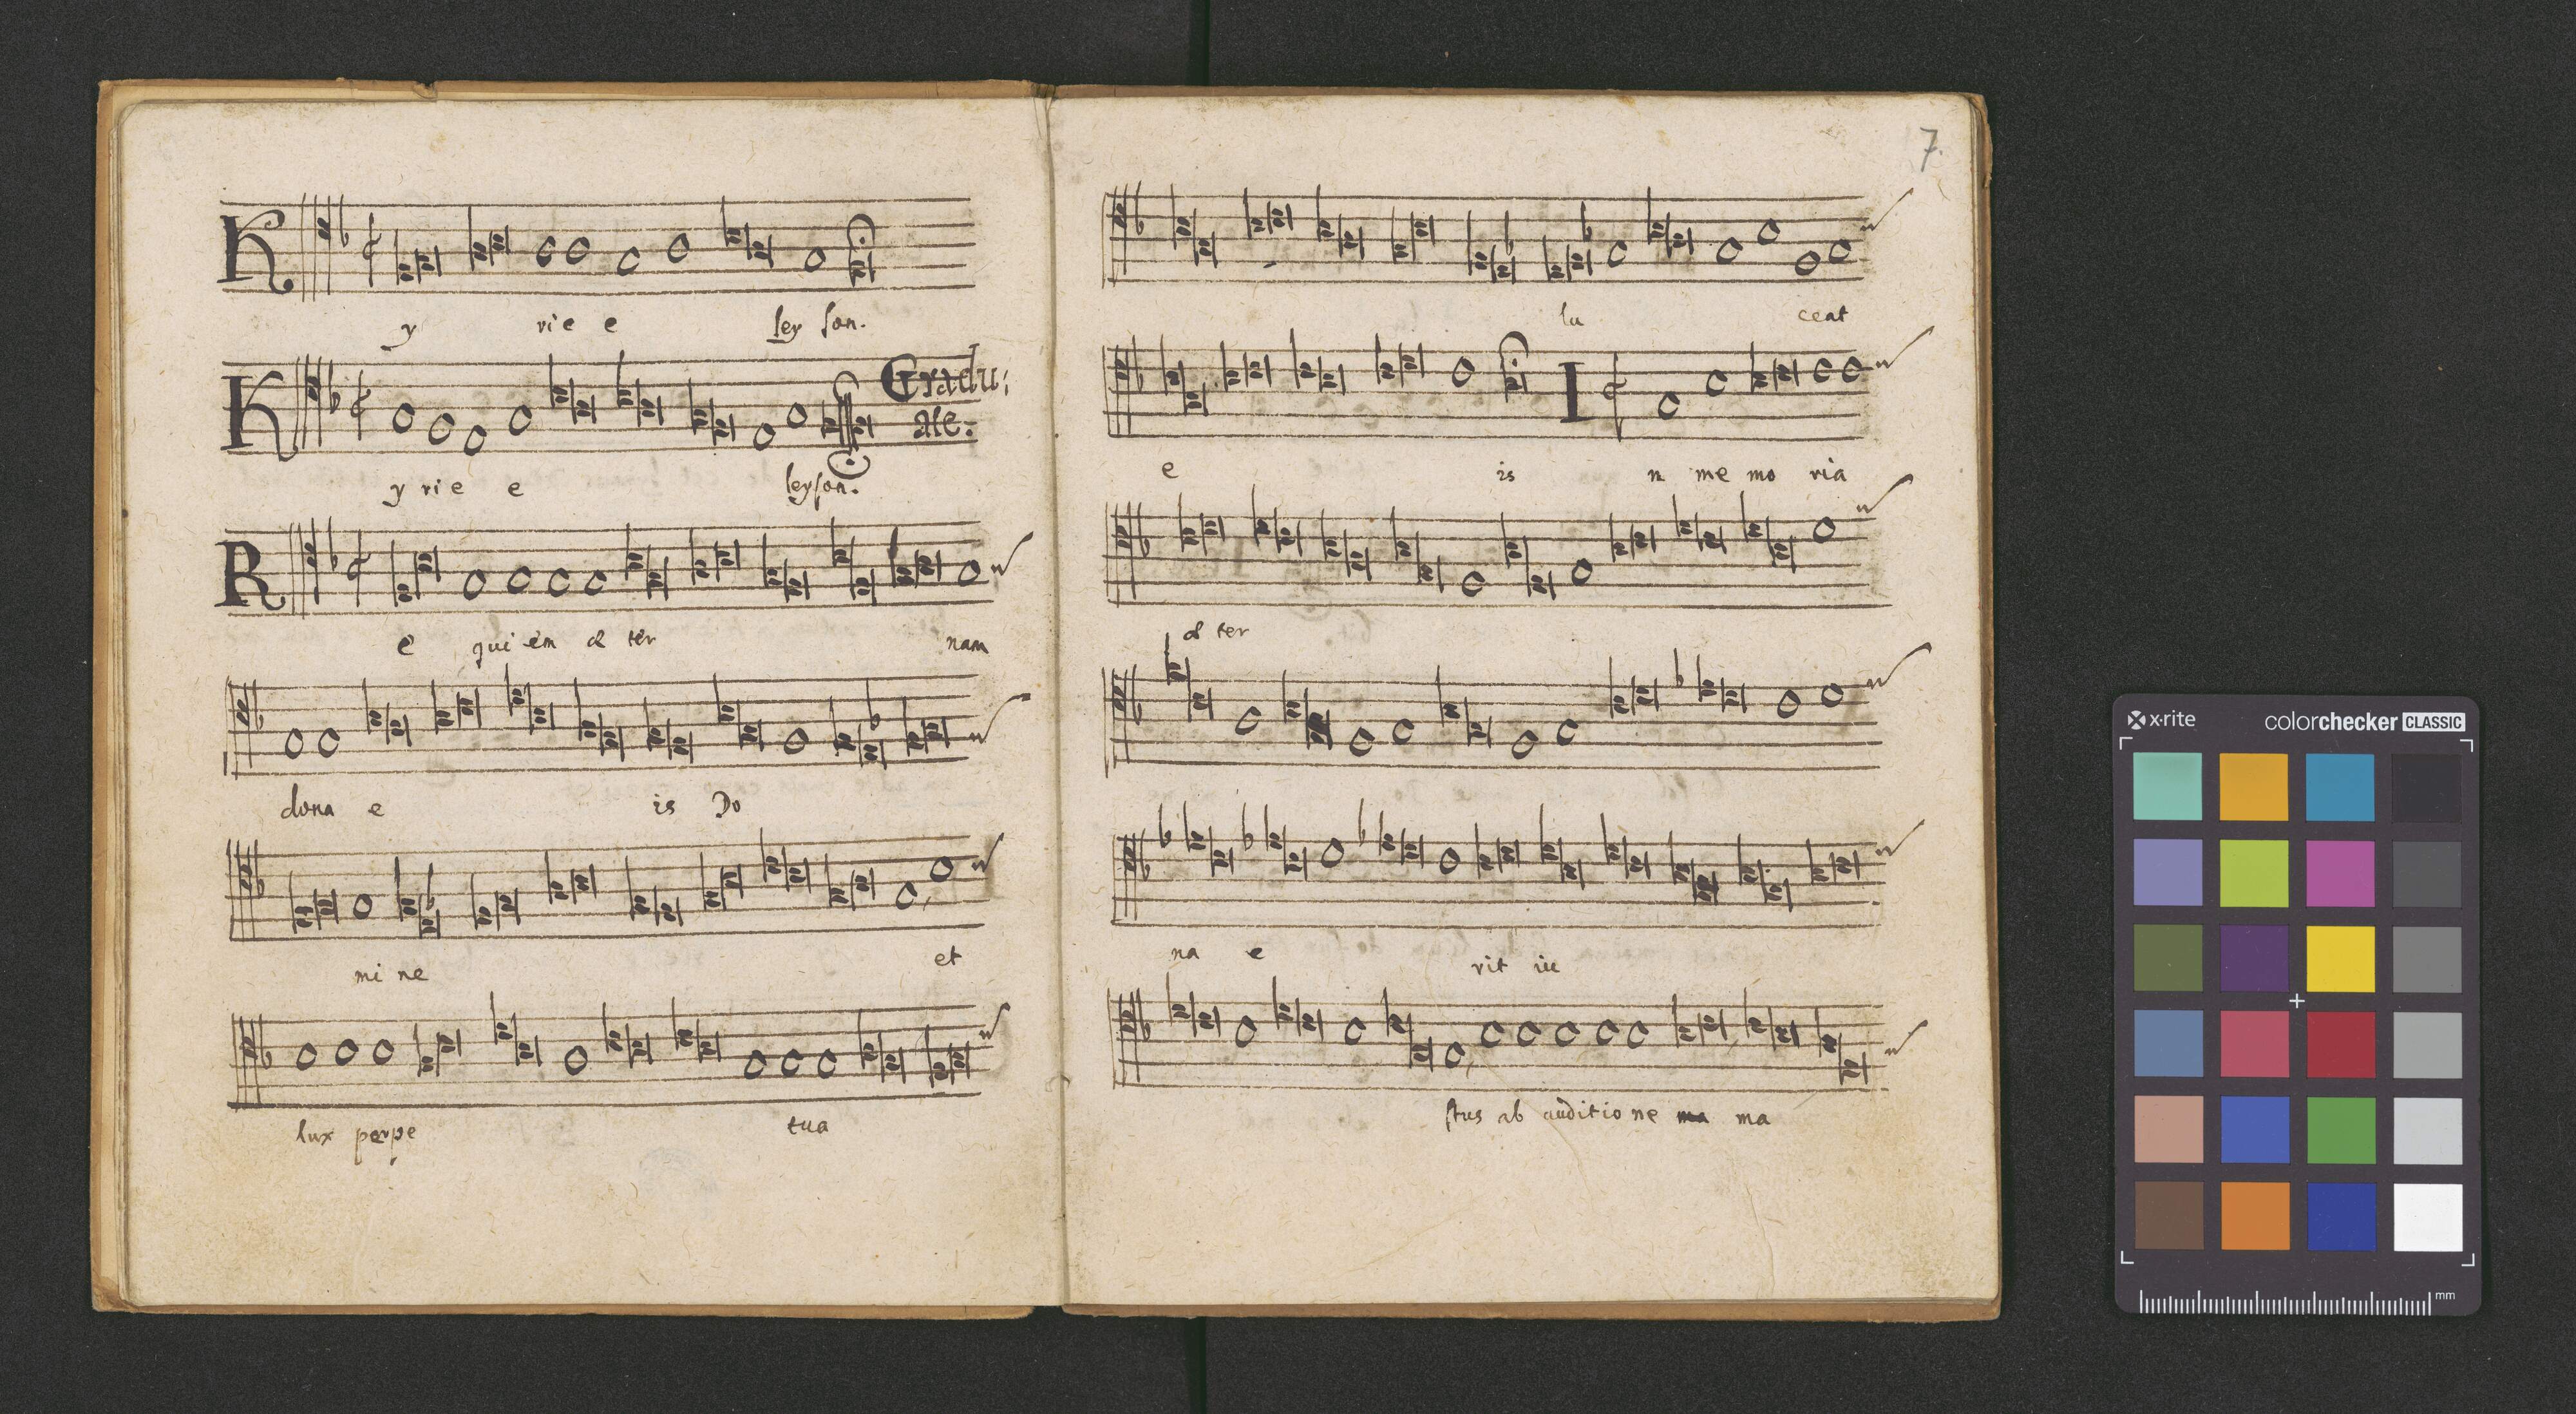 K
y rie e ley son.
K Gradu:
ale.
y rie e leyson.
R
e qui em æ ter nam
dona e is Do
mi ne et
lux perpe tua
7.
lu ceat
I
e is n me mo ria
æ ter
na e rit iu
stus ab auditio ne ma ma
x-rite colorchecker CLASSIC
mm